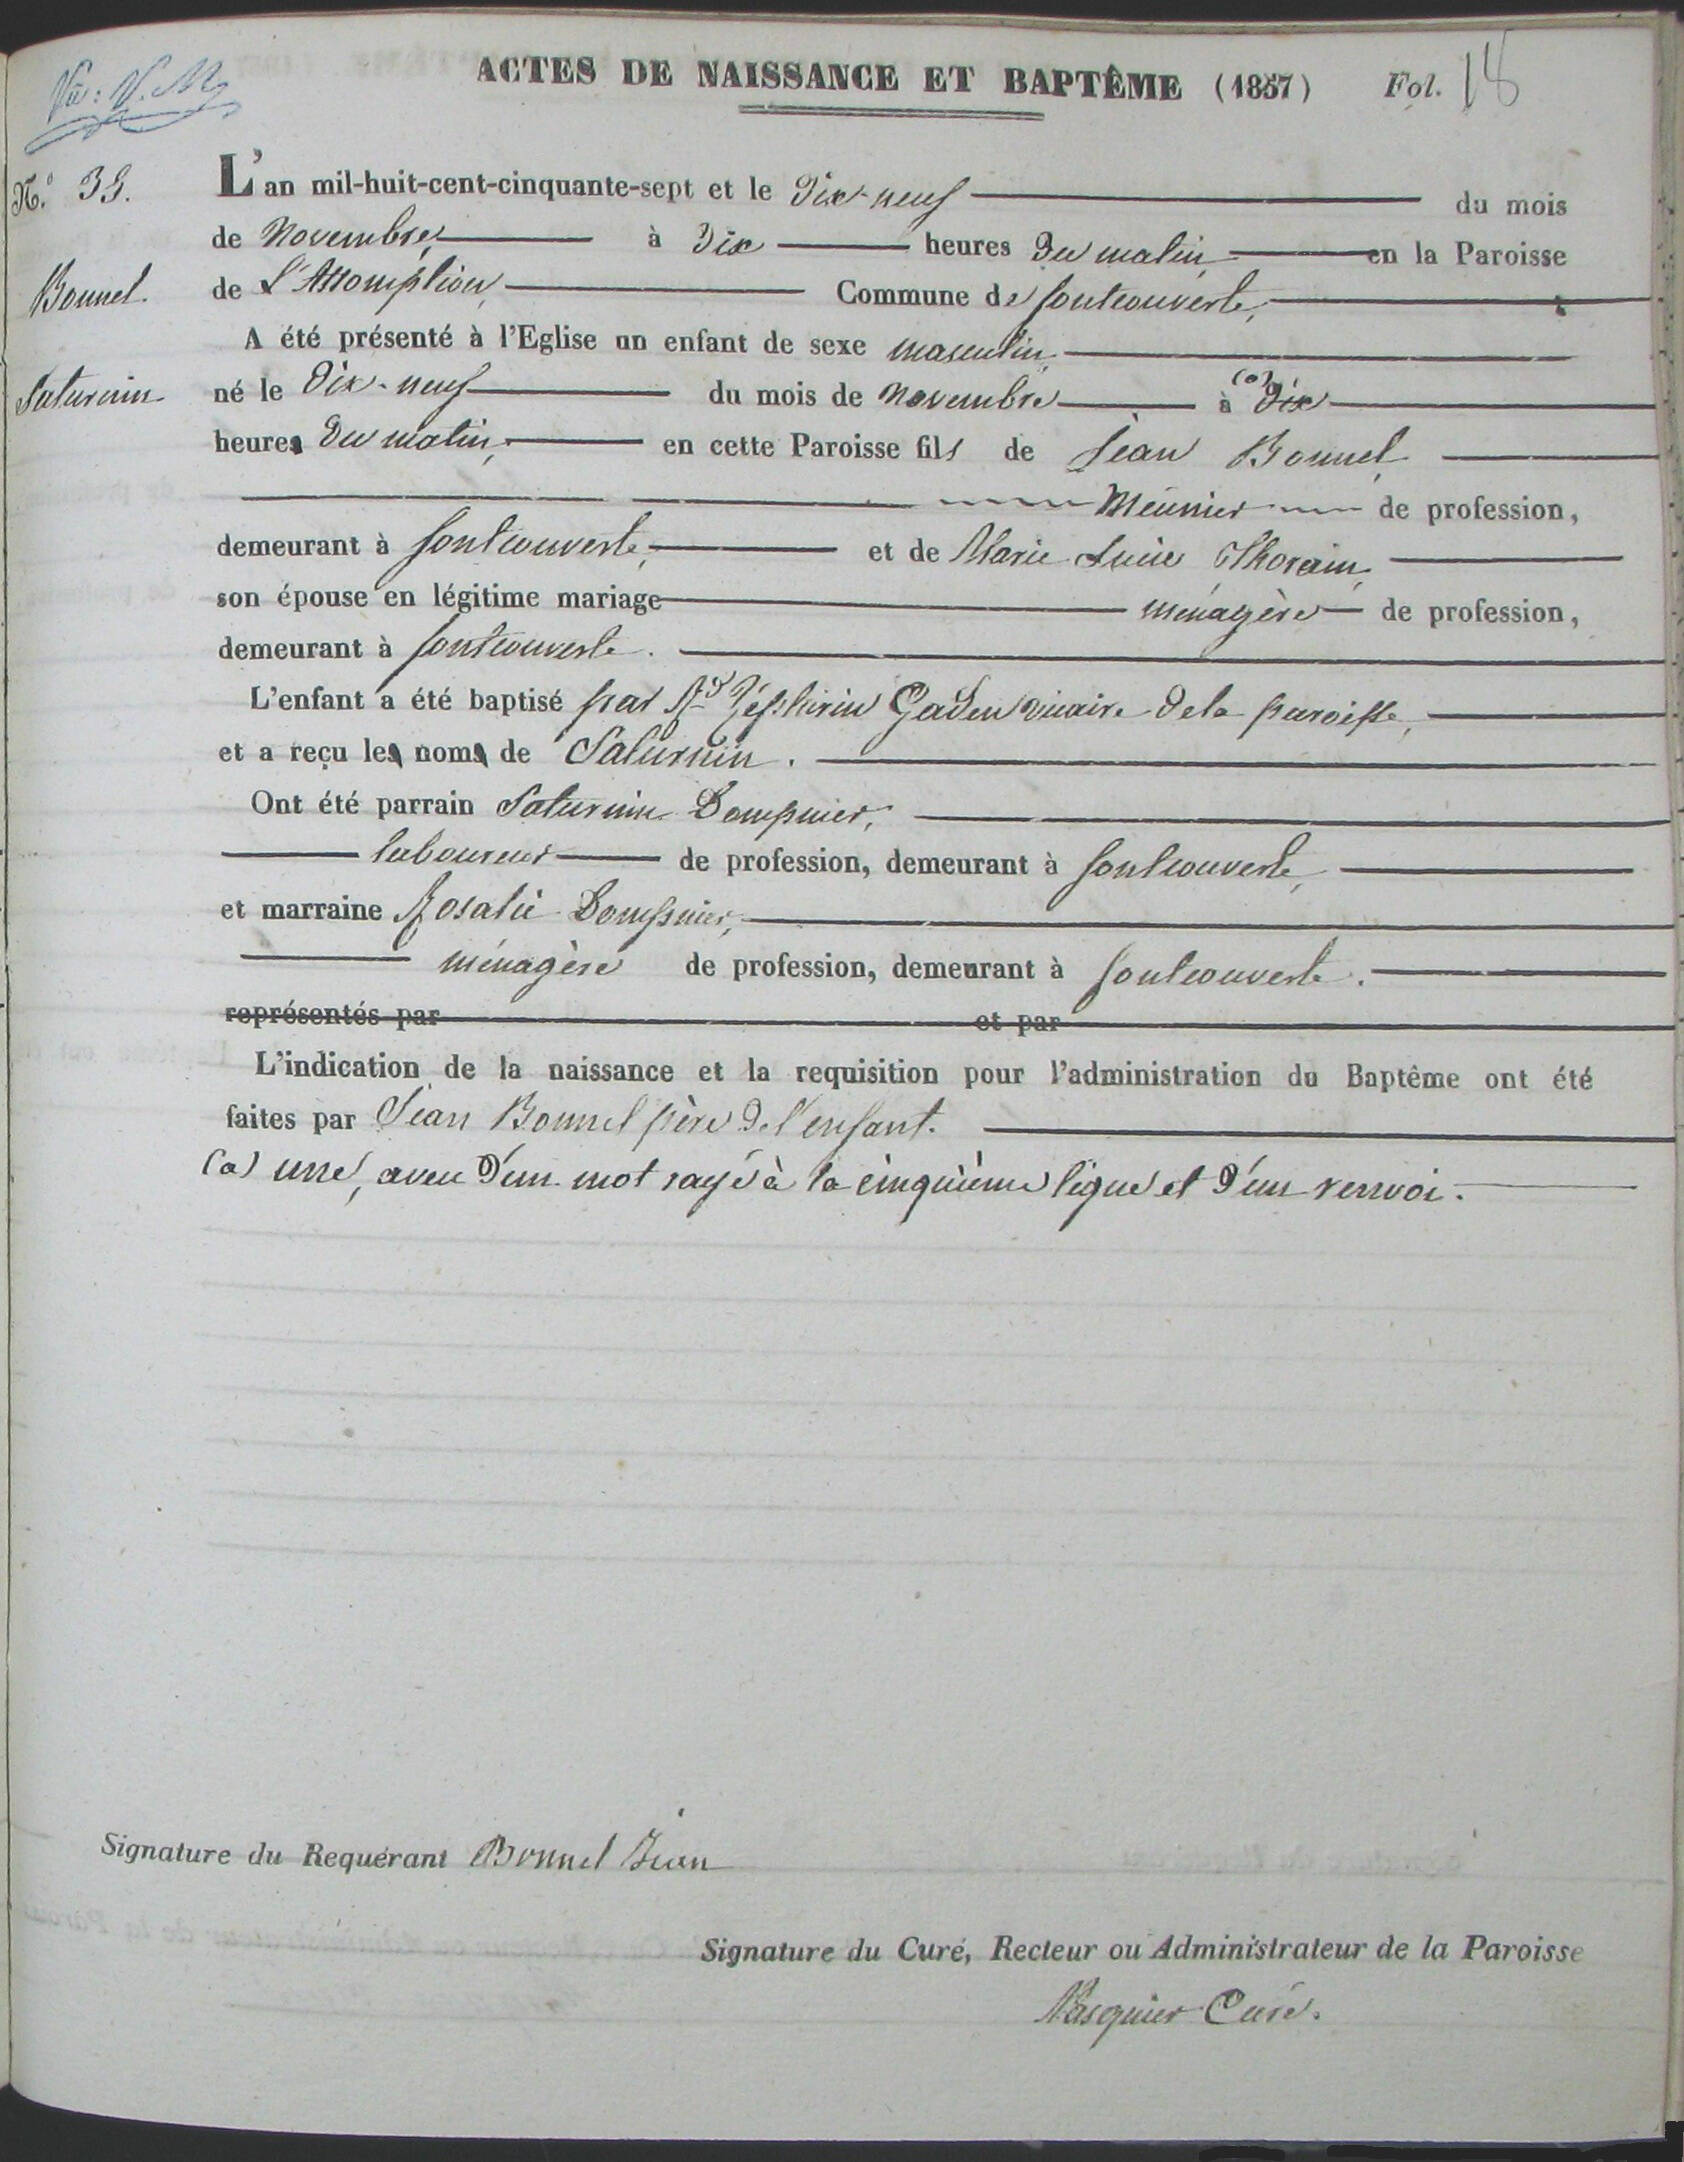 Vu: V. M.
ACTES DE NAISSANCE ET BAPTÊME (1857) Fol. 18
N.º 35.
L'an mil-huit-cent-cinquante-sept et le Dix-neuf du mois
de Novembre, à Dix heures du matin, en la Paroisse
Bonnel.
de l'Assomption, Commune de fontcouverte,
A été présenté à l'Eglise un enfant de sexe masculin,
Saturnin
né le dix-neuf du mois de Novembre à (a) dix
heures du matin, en cette Paroisse fils de Jean Bonnel
Meunier de profession,
demeurant à fontcouverte, et de Marie Lucie Thorain,
son épouse en légitime mariage ménagère de profession,
demeurant à fontcouverte.
L'enfant a été baptisé par Rd Zéphirin Gaden vicaire de la paroisse,
et a reçu les noms de Saturnin.
Ont été parrain Saturnin Dompnier,
laboureur de profession, demeurant à fontcouverte,
et marraine Rosalie Dompnier,
ménagère de profession, demeurant à fontcouverte.
représentés par et par
L'indication de la naissance et la requisition pour l'administration du Baptême ont été
faites par Jean Bonnel père de l'enfant.
(a) une, aveu d'un mot rayé à la cinquième ligne et d'un renvoi.
Signature du Requérant Bonnel Jean
Signature du Curé, Recteur ou Administrateur de la Paroisse
Pasquier Curé.